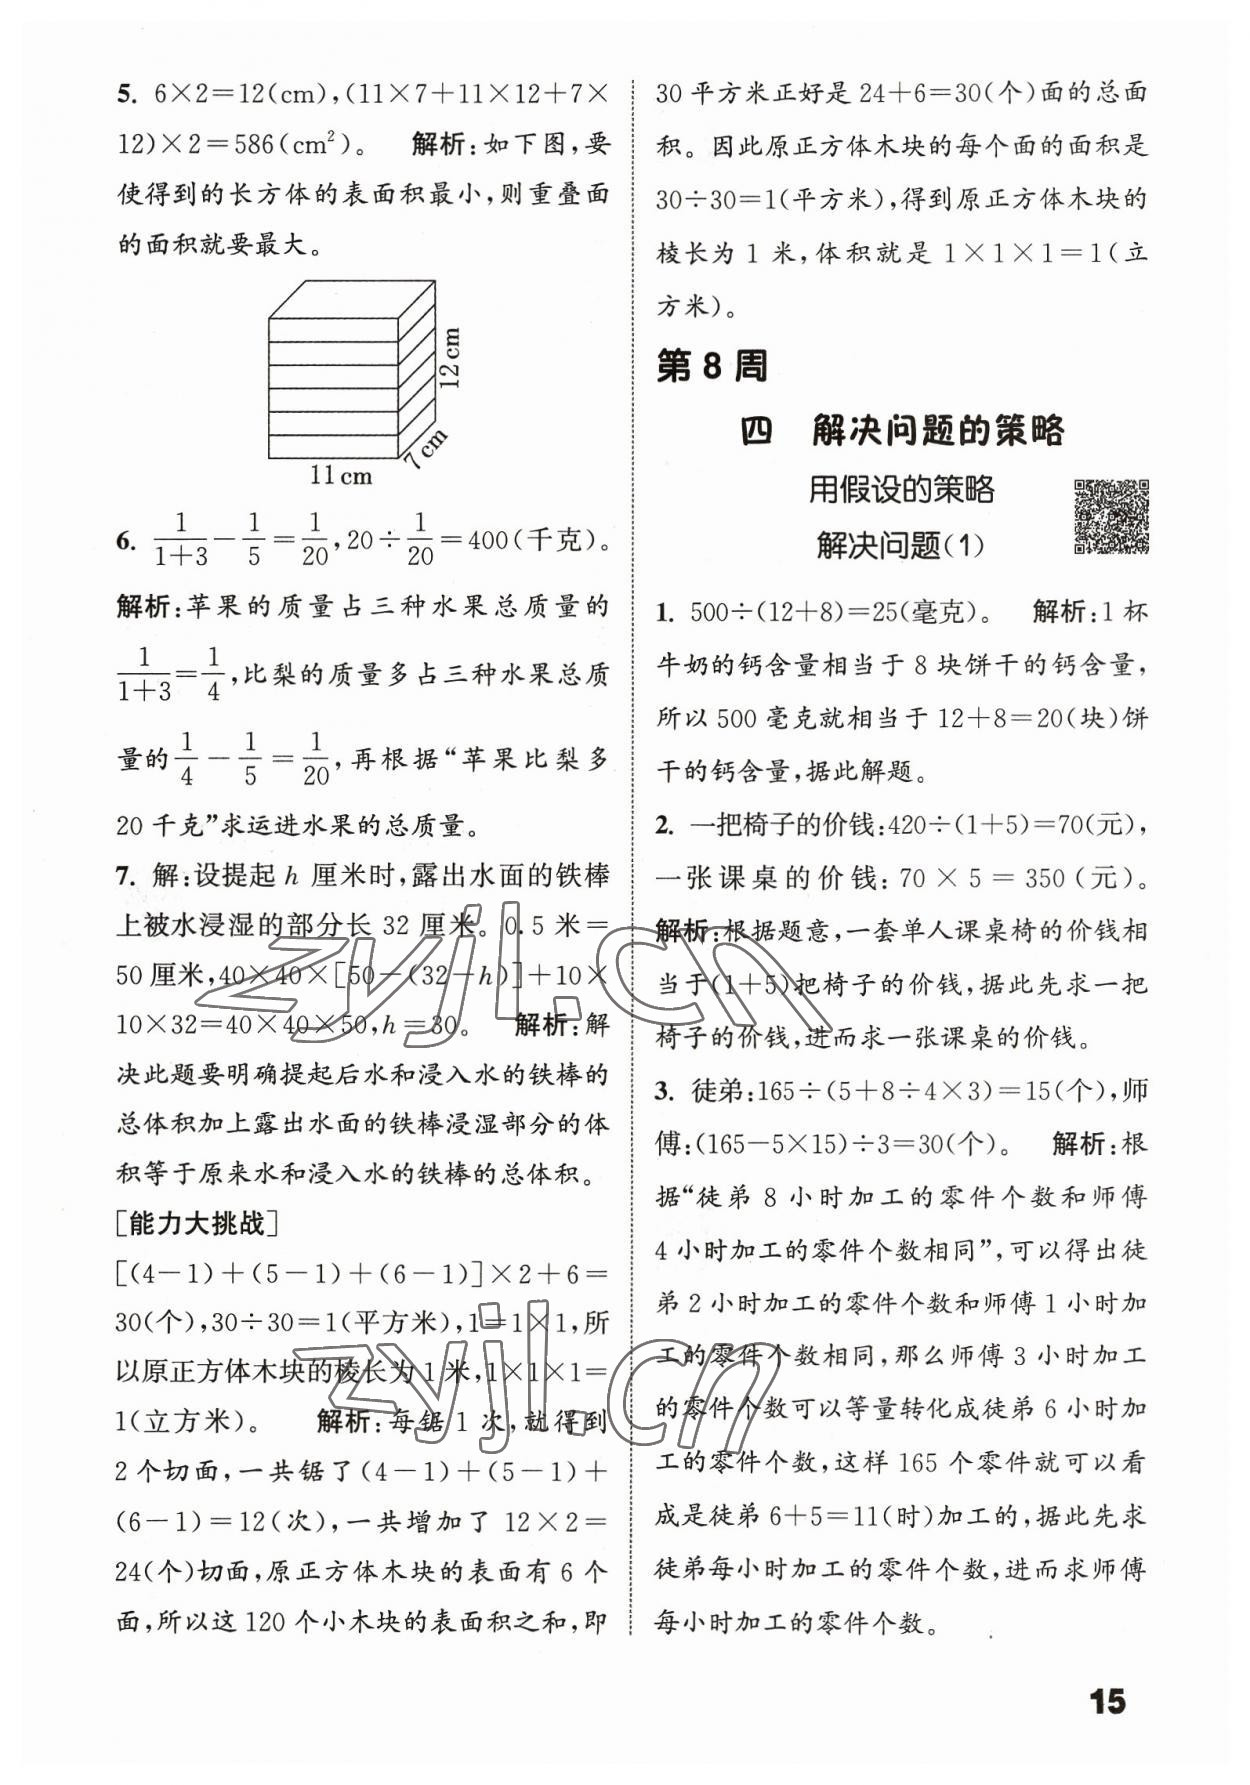 5. 6×2=12(cm),(11×7+11×12+7×
12)×2=586(cm²)。 解析:如下图,要
使得到的长方体的表面积最小,则重叠面
的面积就要最大。
12 cm
7 cm
11 cm
6. 1/(1+3)-1/5=1/20,20÷1/20=400(千克)。
解析:苹果的质量占三种水果总质量的
1/(1+3)=1/4,比梨的质量多占三种水果总质
量的1/4-1/5=1/20,再根据“苹果比梨多
20千克”求运进水果的总质量。
7. 解:设提起 h 厘米时,露出水面的铁棒
上被水浸湿的部分长 32 厘米。0.5 米=
50厘米,40×40×[50-(32-h)]+10×
10×32=40×40×50,h=30。 解析:解
决此题要明确提起后水和浸入水的铁棒的
总体积加上露出水面的铁棒浸湿部分的体
积等于原来水和浸入水的铁棒的总体积。
[能力大挑战]
[(4-1)+(5-1)+(6-1)]×2+6=
30(个),30÷30=1(平方米),1=1×1,所
以原正方体木块的棱长为1米,1×1×1=
1(立方米)。 解析:每锯 1 次,就得到
2个切面,一共锯了(4-1)+(5-1)+
(6-1)=12(次),一共增加了 12×2=
24(个)切面,原正方体木块的表面有 6 个
面,所以这 120 个小木块的表面积之和,即
30平方米正好是24+6=30(个)面的总面
积。因此原正方体木块的每个面的面积是
30÷30=1(平方米),得到原正方体木块的
棱长为 1 米,体积就是 1×1×1=1(立
方米)。
第 8 周
四 解决问题的策略
用假设的策略
解决问题(1)
1. 500÷(12+8)=25(毫克)。 解析:1 杯
牛奶的钙含量相当于 8 块饼干的钙含量,
所以 500 毫克就相当于 12+8=20(块)饼
干的钙含量,据此解题。
2. 一把椅子的价钱:420÷(1+5)=70(元),
一张课桌的价钱:70×5=350(元)。
解析:根据题意,一套单人课桌椅的价钱相
当于(1+5)把椅子的价钱,据此先求一把
椅子的价钱,进而求一张课桌的价钱。
3. 徒弟:165÷(5+8÷4×3)=15(个),师
傅:(165-5×15)÷3=30(个)。 解析:根
据“徒弟 8 小时加工的零件个数和师傅
4小时加工的零件个数相同”,可以得出徒
弟 2 小时加工的零件个数和师傅 1 小时加
工的零件个数相同,那么师傅 3 小时加工
的零件个数可以等量转化成徒弟 6 小时加
工的零件个数,这样 165 个零件就可以看
成是徒弟 6+5=11(时)加工的,据此先求
徒弟每小时加工的零件个数,进而求师傅
每小时加工的零件个数。
15
zyjl.cn
zyjl.cn